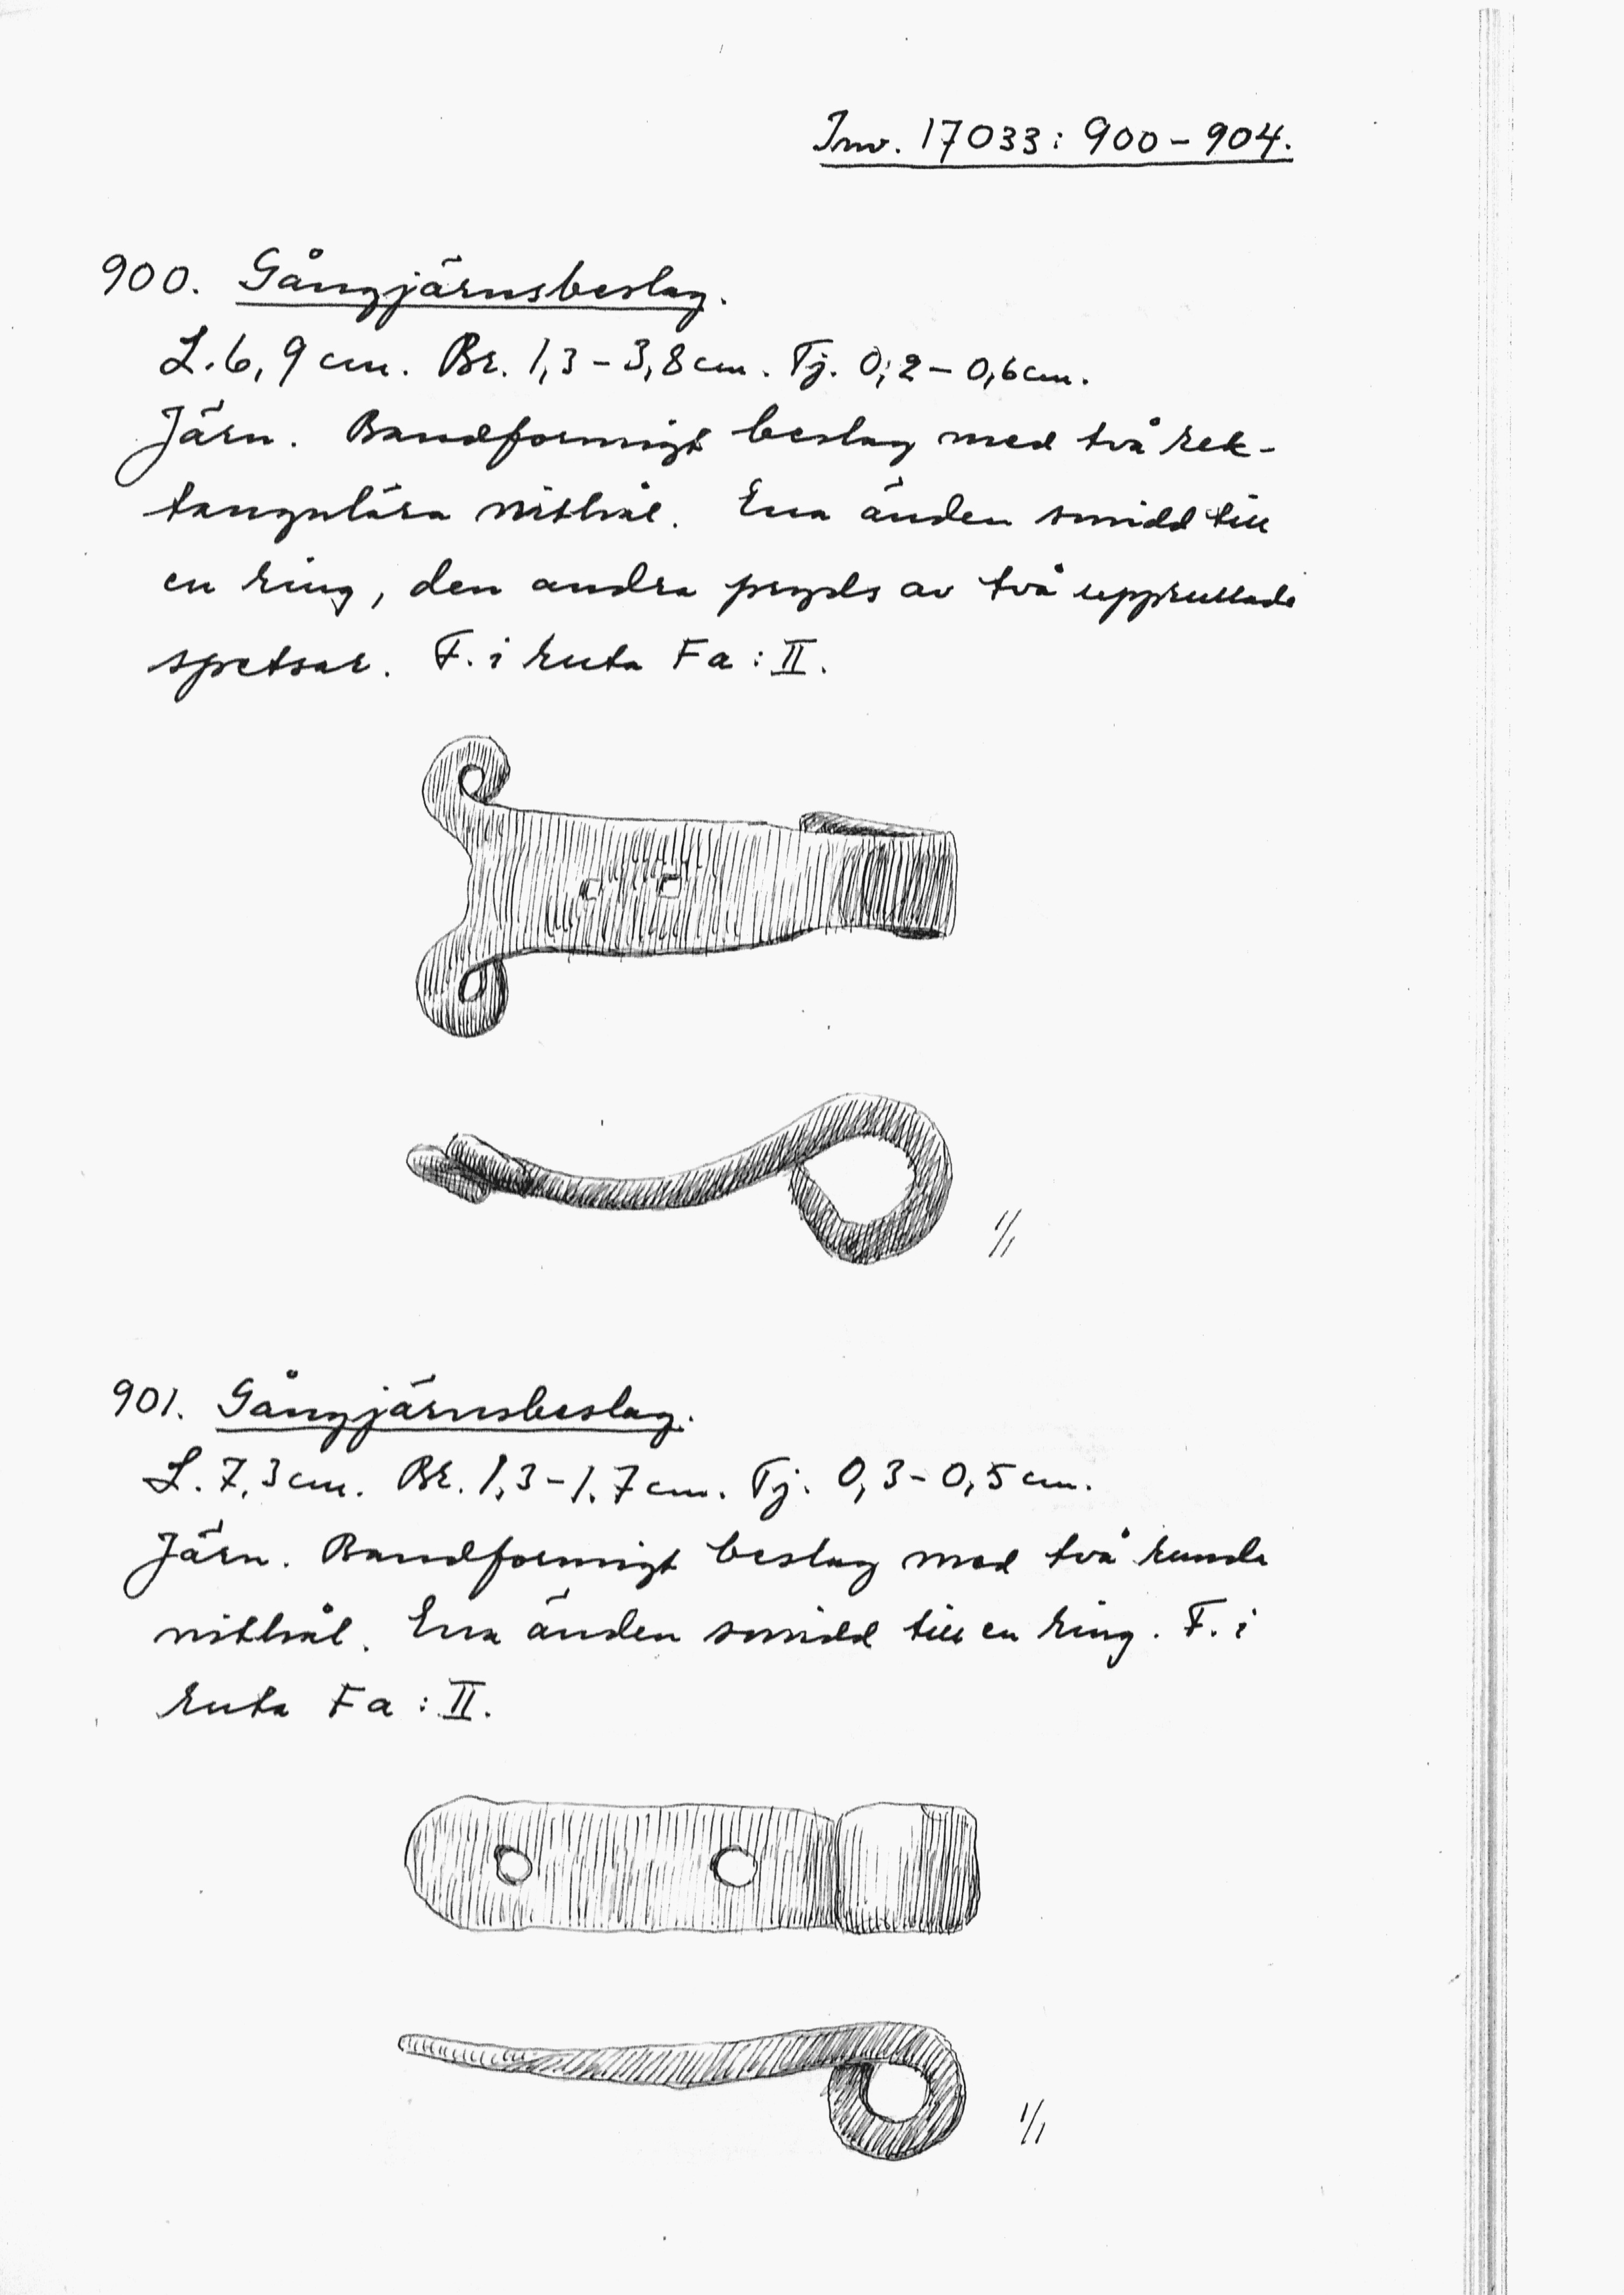 Inv. 17033: 900-904.
900. Gångjärnsbeslag.
L. 6,9 cm. Br. 1,3-3,8 cm. Tj. 0,2-0,6 cm.
Järn. Bandformigt beslag med två rek-
tangulära nithål. Ena änden smidd till
en ring, den andra pryds av två upprullade
spetsar. F. i ruta Fa: II.
1/1
901. Gångjärnsbeslag.
L. 7,3 cm. Br. 1,3-1,7 cm. Tj. 0,3-0,5 cm.
Järn. Bandformigt beslag med två runda
nithål. Ena änden smidd till en ring. F. i
ruta Fa: II.
1/1